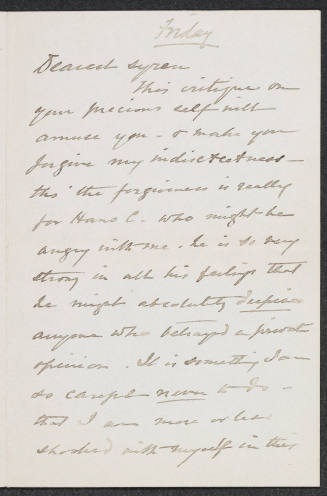 Friday
Dearest Syren
This critique on
your precious self will
amuse you - & make you
forgive my indiscreetness -
tho' the forgiveness is really
for Hans C. who might be
angry with me. he is so very
strong in all his feelings that
he might absolutely despise
anyone who betrayed a private
opinion. It is something I am
so careful never to do -
that I am more or less
shocked with myself in this